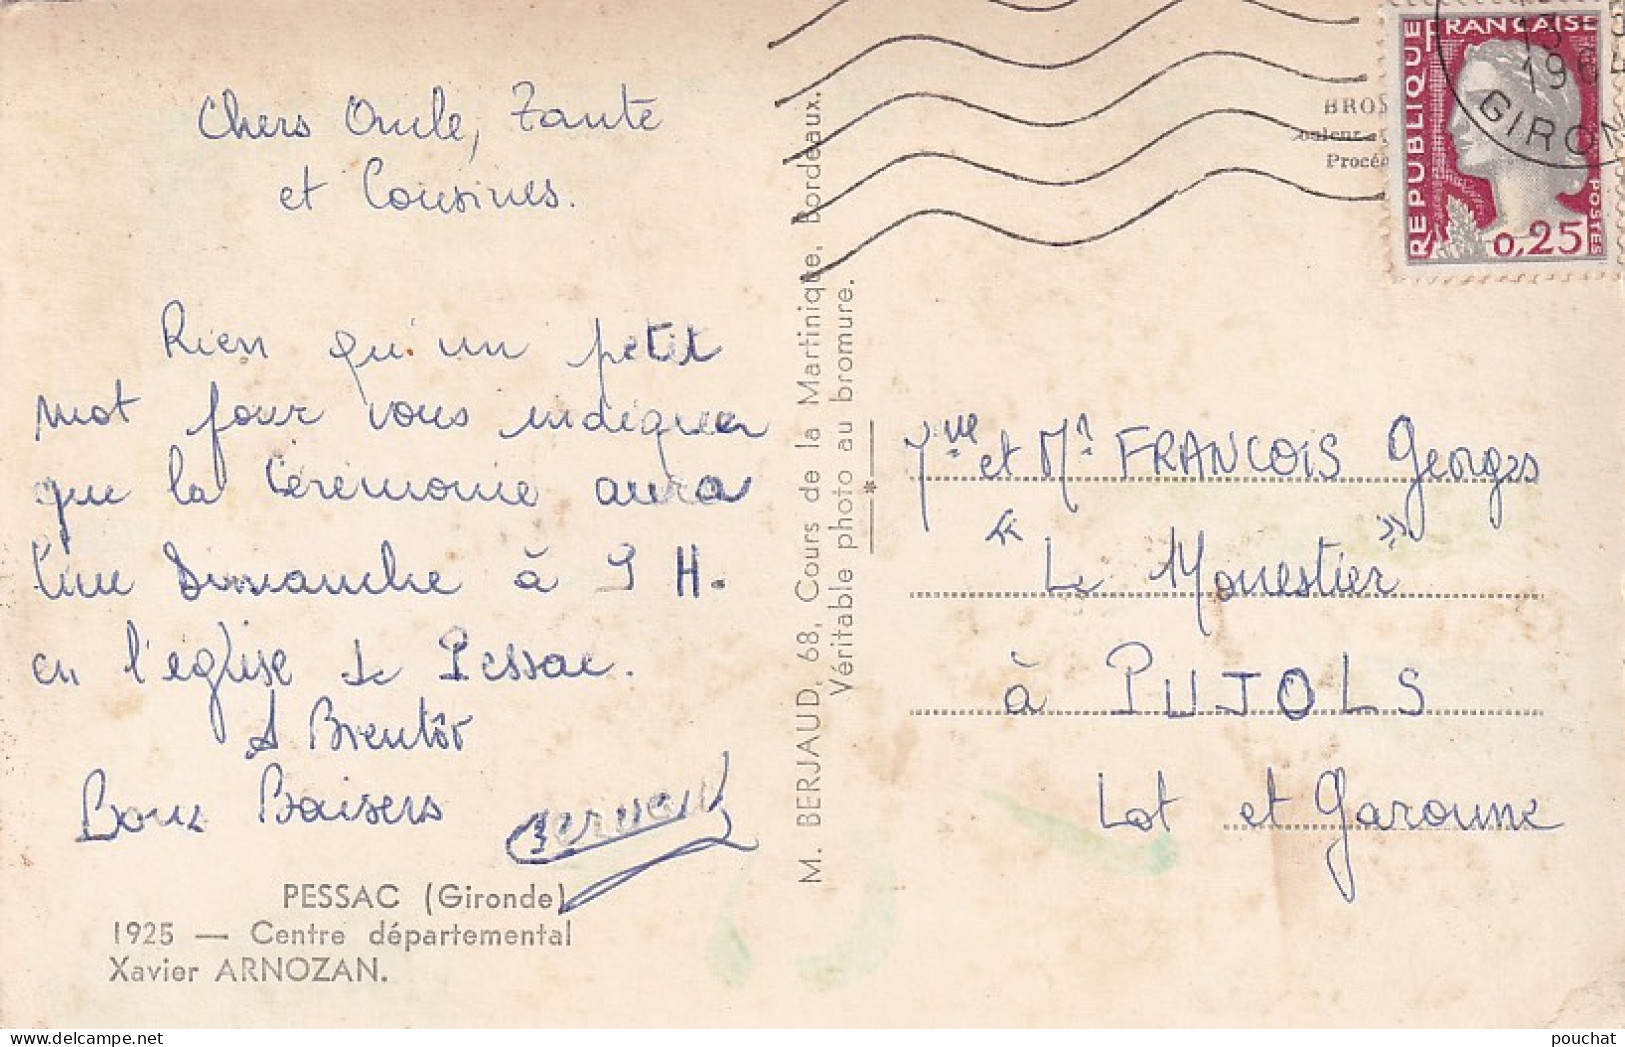 Chers Oncle, Tante
et Cousines.
Rien qu'un petit
mot pour vous indiquer
que la Cérémonie aura
lieu Dimanche à 9 H.
en l'église de Pessac.
A Bientôt
Bons Baisers
PESSAC (Gironde)
1925 — Centre départemental
Xavier ARNOZAN.
M. BERJAUD, 68, Cours de la Martinique, Bordeaux.
Véritable photo au bromure.
BROS
Procé
REPUBLIQUE FRANÇAISE
POSTES
0,25
13
196
GIRON
Mme et Mr FRANCOIS Georges
"Le Monestier"
à PUJOLS
Lot et Garonne
pouchat